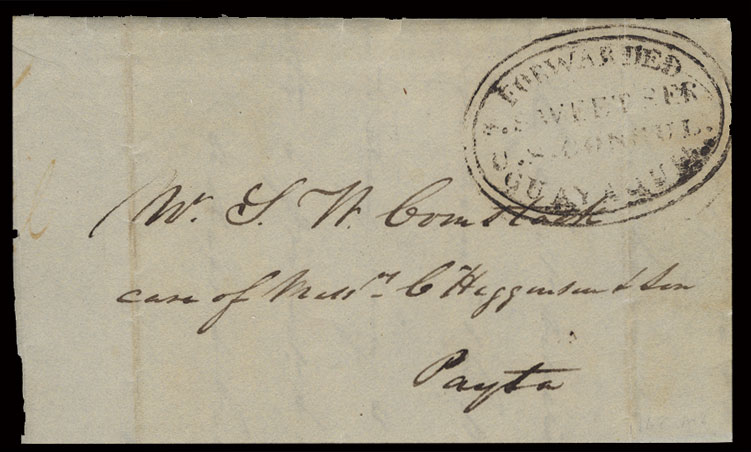 FORWARDED
SWEETSER
U.S. CONSUL.
GUAYAQUIL
Mr. S. W. Comstock
care of Messrs. C Higginson & Son
Payta